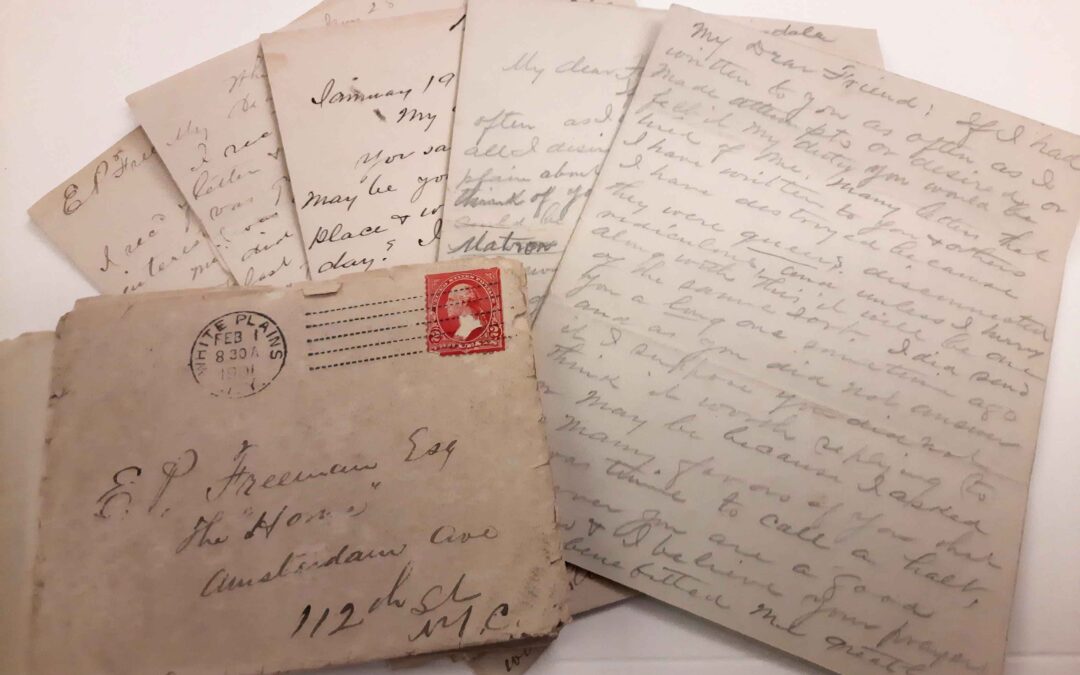 WHITE PLAINS
FEB 1
8 30 A
1901
N.Y.
E. P. Freeman Esq
The "Home"
Amsterdam Ave
112th St
N.Y.C.
E P Free
I rec'd
inter
My
I rec
letter
was
did
last
January 19
My
You sa
may be yo
place & w
day. I
My dear
often as I
all I desir
plain about
think of yo
Matron
dale
My Dear Friend: If I had
written to you as often as I
made attempts or desire or
felt it my duty you would be
tired of me. Many letters that
I have written to you & others
I have destroyed because
they were queer, disconnected
ridiculous, and unless I hurry
along with this it will be one
of the same sort. I did send
you a long one sometime ago
and as you did not answer
it I suppose you did not
think it worth replying to
or may be because I asked
many favors of you that
was time to call a halt,
ever you are a good
& I believe your prayers
benefitted me great